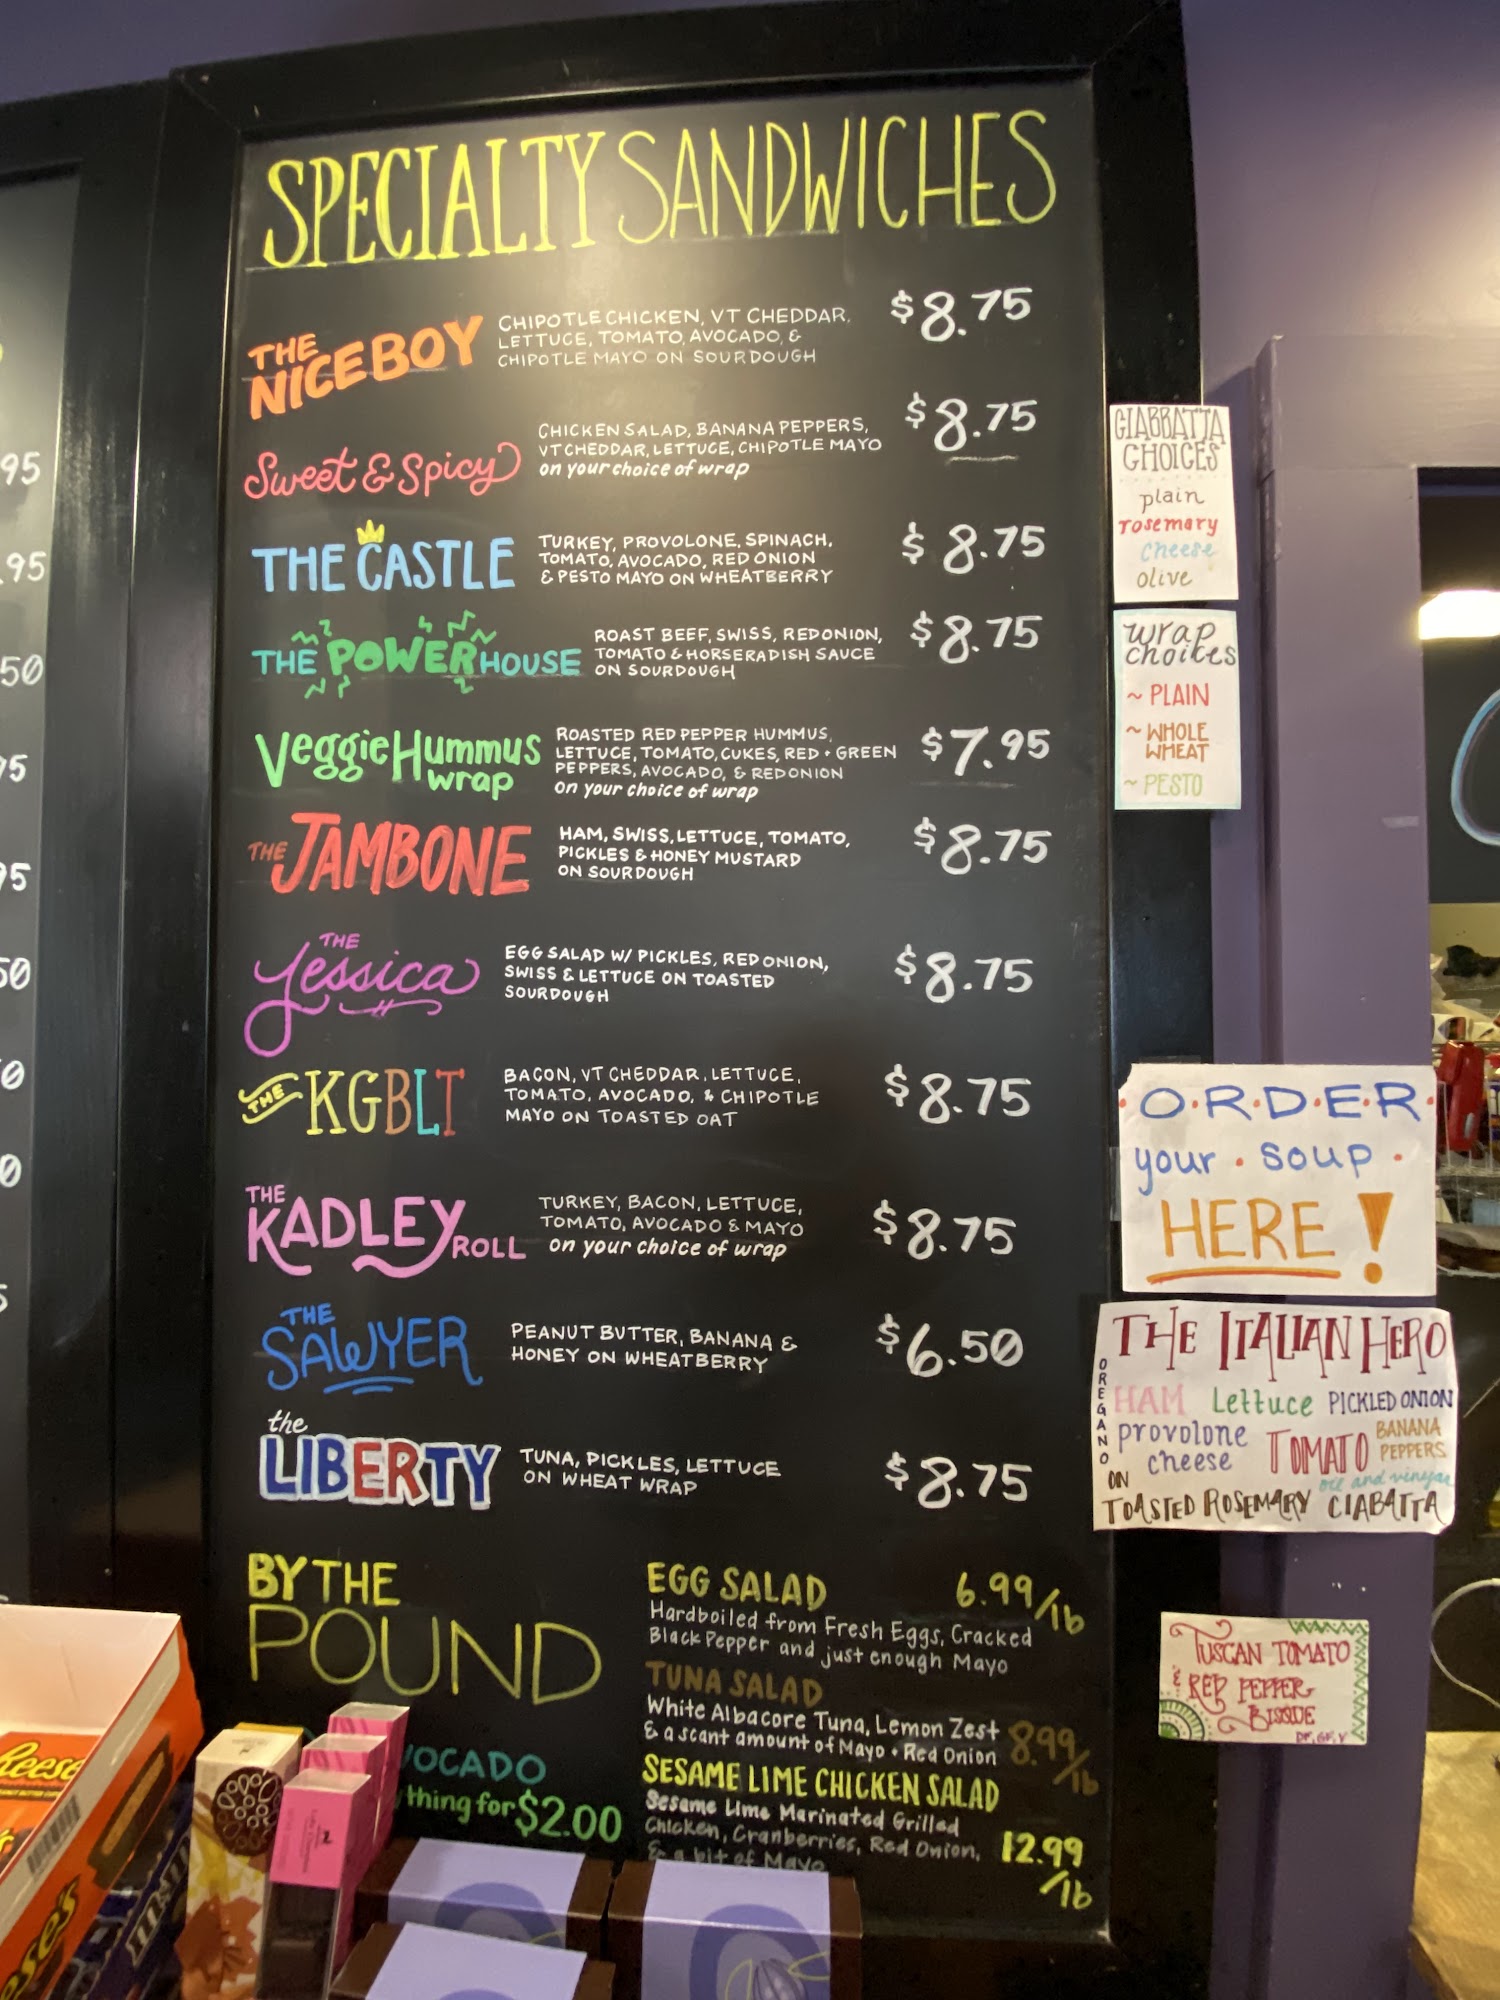 SPECIALTY SANDWICHES
THE
NICE BOY
CHIPOTLE CHICKEN, VT CHEDDAR,
LETTUCE, TOMATO, AVOCADO, &
CHIPOTLE MAYO ON SOURDOUGH
$8.75
Sweet & Spicy
CHICKEN SALAD, BANANA PEPPERS,
VT CHEDDAR, LETTUCE, CHIPOTLE MAYO
on your choice of wrap
$8.75
THE CASTLE
TURKEY, PROVOLONE, SPINACH,
TOMATO, AVOCADO, RED ONION
& PESTO MAYO ON WHEATBERRY
$8.75
THE POWERHOUSE
ROAST BEEF, SWISS, RED ONION,
TOMATO & HORSERADISH SAUCE
ON SOURDOUGH
$8.75
Veggie Hummus
wrap
ROASTED RED PEPPER HUMMUS,
LETTUCE, TOMATO, CUKES, RED + GREEN
PEPPERS, AVOCADO, & RED ONION
on your choice of wrap
$7.95
THE JAMBONE
HAM, SWISS, LETTUCE, TOMATO,
PICKLES & HONEY MUSTARD
ON SOURDOUGH
$8.75
THE
Jessica
EGG SALAD W/ PICKLES, RED ONION,
SWISS & LETTUCE ON TOASTED
SOURDOUGH
$8.75
THE KGBLT
BACON, VT CHEDDAR, LETTUCE,
TOMATO, AVOCADO, & CHIPOTLE
MAYO ON TOASTED OAT
$8.75
THE
KADLEY ROLL
TURKEY, BACON, LETTUCE,
TOMATO, AVOCADO & MAYO
on your choice of wrap
$8.75
THE
SAWYER
PEANUT BUTTER, BANANA &
HONEY ON WHEATBERRY
$6.50
the
LIBERTY
TUNA, PICKLES, LETTUCE
ON WHEAT WRAP
$8.75
BY THE
POUND
EGG SALAD 6.99/lb
Hardboiled from Fresh Eggs, Cracked
Black Pepper and just enough Mayo
TUNA SALAD
White Albacore Tuna, Lemon Zest
& a scant amount of Mayo + Red Onion
8.99/lb
SESAME LIME CHICKEN SALAD
Sesame Lime Marinated Grilled
Chicken, Cranberries, Red Onion,
& a bit of Mayo
12.99
/lb
VOCADO
thing for $2.00
CIABBATTA
CHOICES
plain
rosemary
cheese
olive
wrap
choices
~ PLAIN
~ WHOLE
WHEAT
~ PESTO
O·R·D·E·R·
your · soup ·
HERE!
THE ITALIAN HERO
OREGANO
HAM Lettuce PICKLED ONION
provolone
cheese
TOMATO
BANANA
PEPPERS
oil and vinegar
ON
TOASTED ROSEMARY CIABATTA
TUSCAN TOMATO
& RED PEPPER
BISQUE
DF, GF, V
95
.95
50
75
95
50
0
0
5
Reese